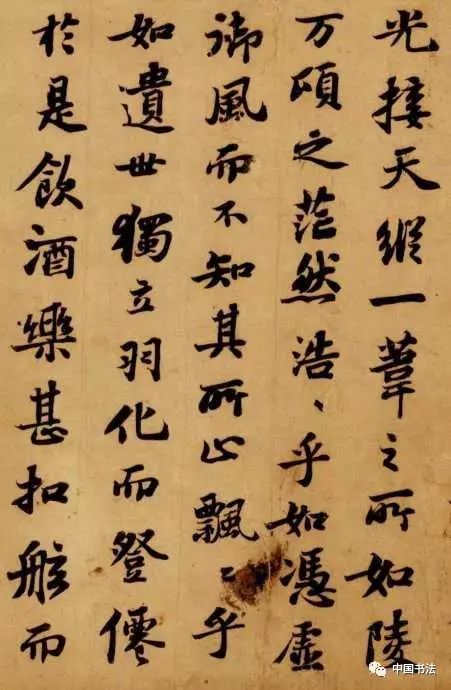 光接天縱一葦之所如陵
万頃之茫然浩〻乎如憑虛
御風而不知其所止飄〻乎
如遺世獨立羽化而登僊
於是飲酒樂甚扣舷而
中国书法